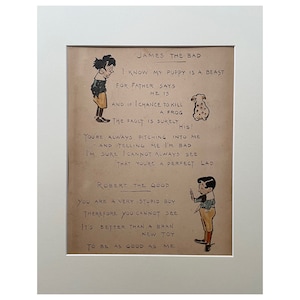 JAMES THE BAD
I KNOW MY PUPPY IS A BEAST
FOR FATHER SAYS
HE IS
AND IF I CHANCE TO KILL
A FROG
THE FAULT IS SURELY
HIS
YOU'RE ALWAYS PITCHING INTO ME
AND TELLING ME I'M BAD
I'M SURE I CANNOT ALWAYS SEE
THAT YOU'RE A PERFECT LAD
ROBERT THE GOOD
YOU ARE A VERY STUPID BOY
THEREFORE YOU CANNOT SEE
IT'S BETTER THAN A BRAN
NEW TOY
TO BE AS GOOD AS ME